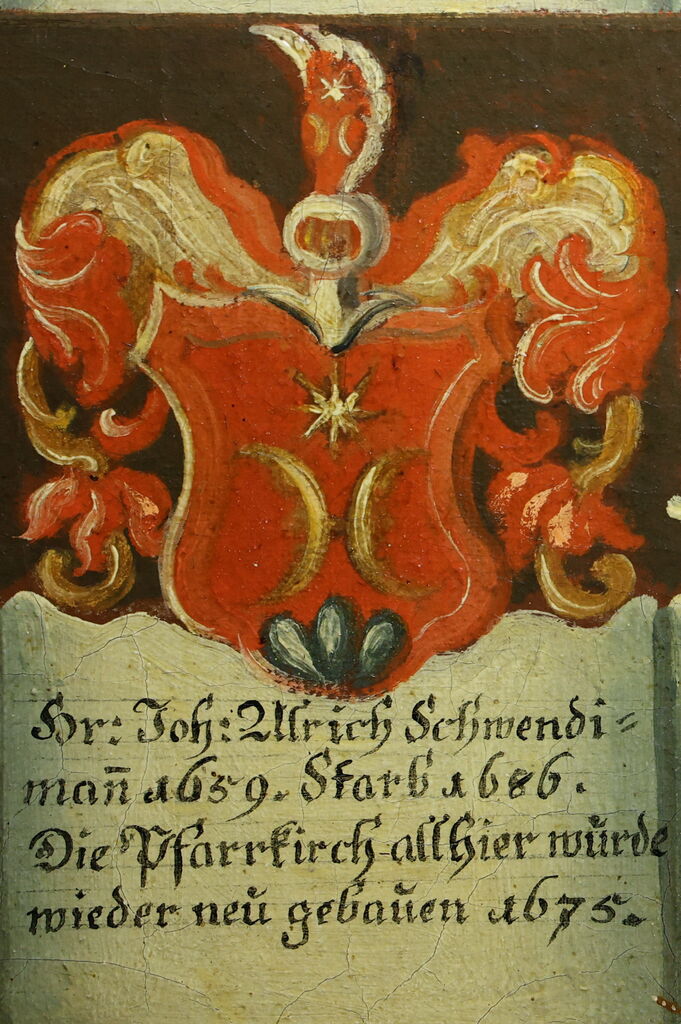 Hr: Joh: Ulrich Schwendi=
man̄ 1659. Starb 1686.
Die Pfarrkirch allhier würde
wieder neü gebaüen 1675.